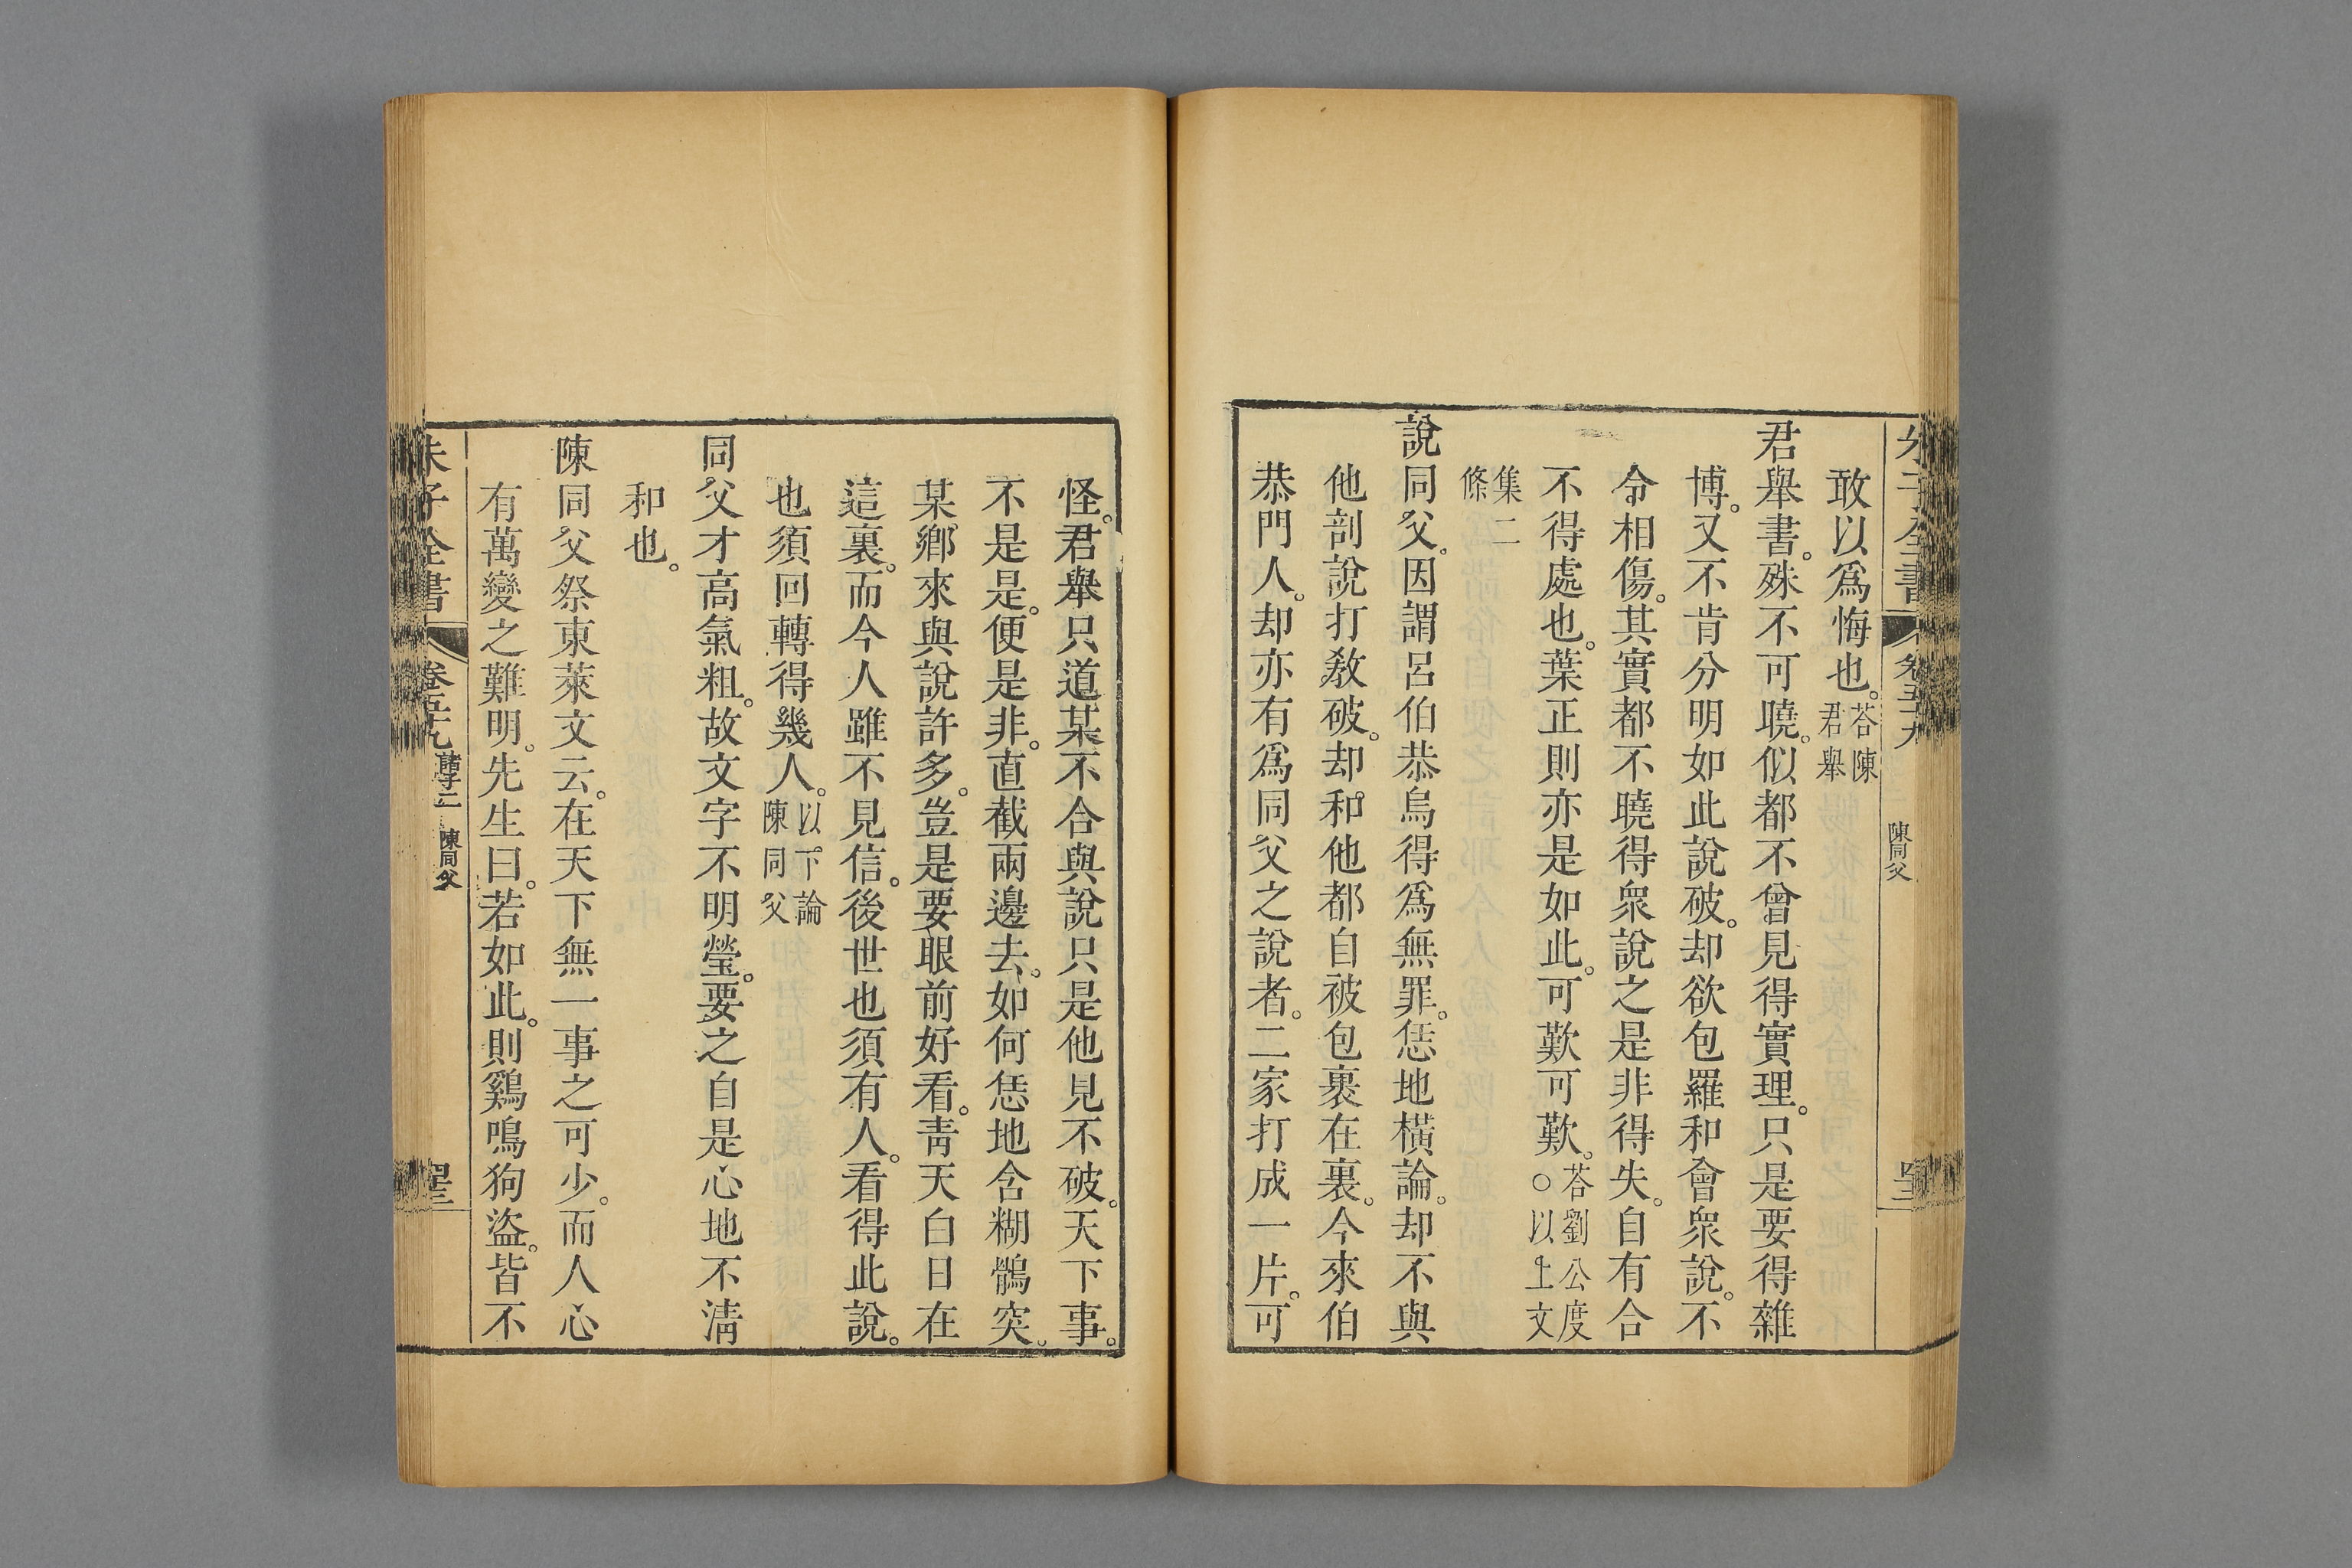 朱子全書 卷五十九 陳同父
敢以爲悔也。答陳君舉
君舉書。殊不可曉。似都不曾見得實理。只是要得雜
博。又不肯分明如此說破。却欲包羅和會衆說。不
令相傷。其實都不曉得衆說之是非得失。自有合
不得處也。葉正則亦是如此。可歎可歎。答劉公度○以上文
集二條
說同父。因謂呂伯恭烏得爲無罪。恁地橫論。却不與
他剖說打敎破。却和他都自被包裹在裏。今來伯
恭門人。却亦有爲同父之說者。二家打成一片。可
怪。君舉只道某不合與說。只是他見不破。天下事。
不是是。便是非。直截兩邊去。如何恁地含糊鶻突。
某鄕來與說許多。豈是要眼前好看。靑天白日在
這裏。而今人雖不見信。後世也須有人。看得此說。
也須回轉得幾人。以下論陳同父
同父才高氣粗。故文字不明瑩。要之自是心地不淸
和也。
陳同父祭東萊文云。在天下無一事之可少。而人心
有萬變之難明。先生曰。若如此。則鷄鳴狗盜。皆不
朱子全書 卷五十九 諸子二 陳同父